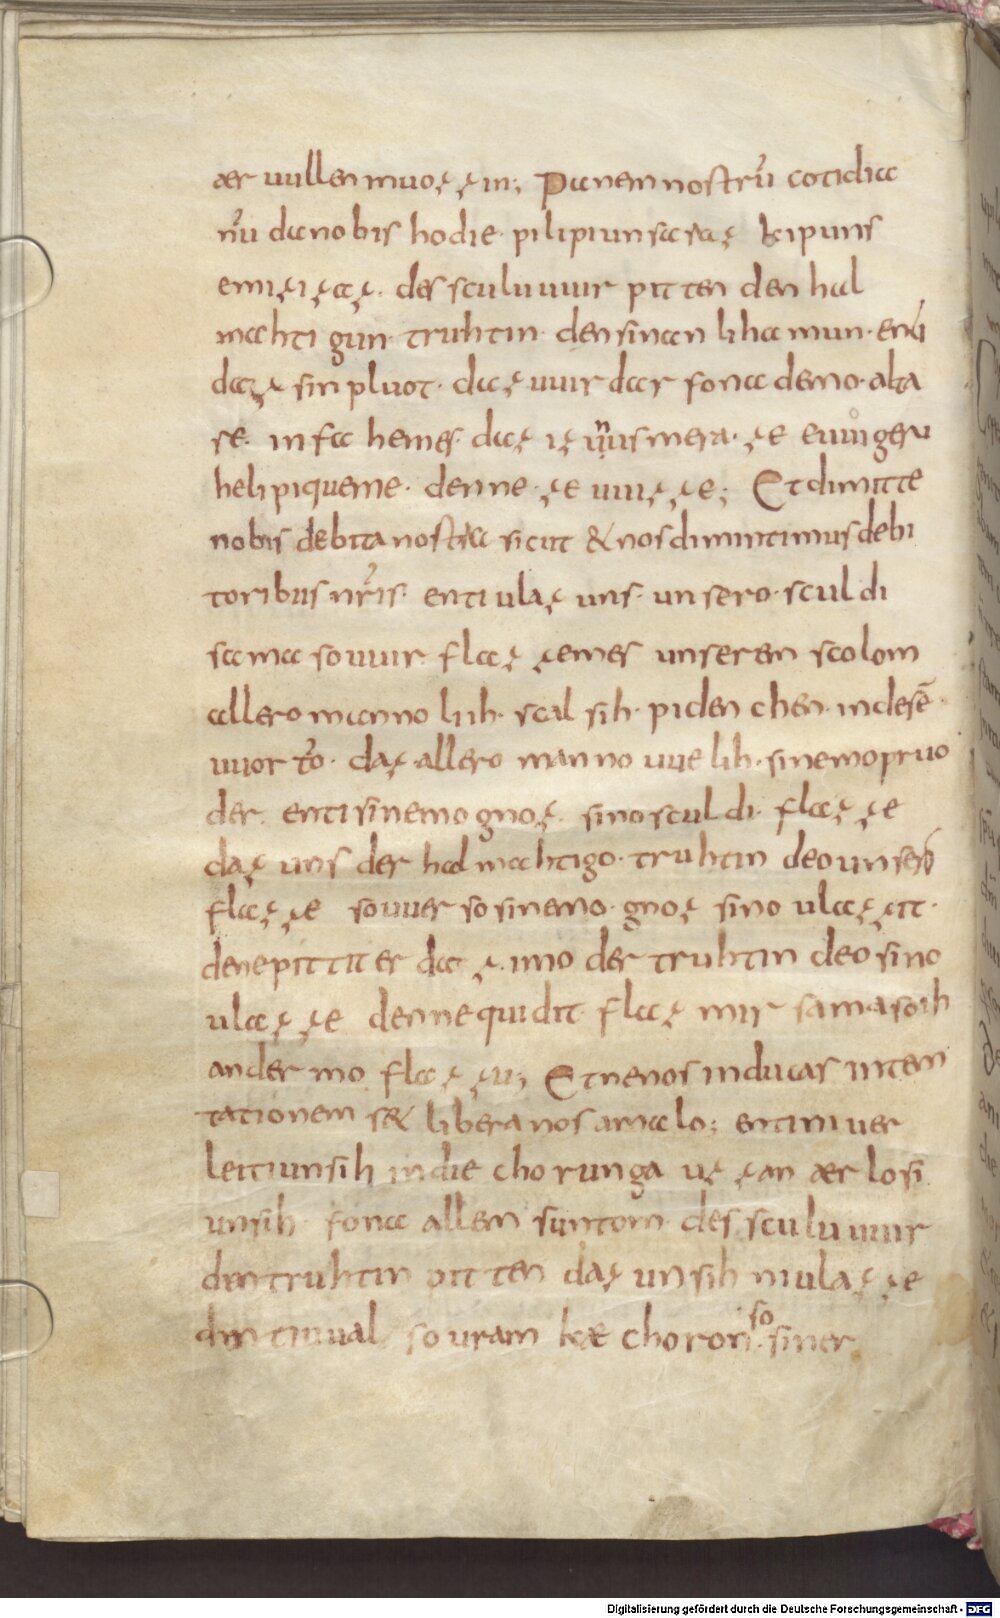 aer uuillen muozzin; Panem nostrū cotidia
nū da nobis hodie· pilipi unsaraz kipuns
emizigaz· des sculu uuir pitten den hal
mahtigun· truhtin· den sinan lihamun· enti
daz sin pluot· daz uuir dar fona demo alta
re· in fahemes· daz iz uns mera· ze euuigeru
heli piqueme· denne· ze uuizze; Et dimitte
nobis debita nostra sicut & nos dimittimus debi
toribus nr̄is· enti ulaz uns· unsero· sculdi
sama so uuir flazzemes unserem scolom
allero manno liih· scal sih· pidenchen· in desē
uuortō· daz allero manno uuelih· sinemo pruo
der· enti sinemo gnoz· sino sculdi· flazze
daz uns der halmahtigo· truhtin deo unsero
flazze souuer so sinemo· gnoz sino ulazzit·
dene pittit er daz· imo der truhtin deo sino
ulazze denne quidit· flaz mir sama so ih
andermo flazzu; Et ne nos inducas in tem
tationem s& libera nos a malo; enti ni uer
leiti unsih in die chorunga uzzan aer losi
unsih· fona allem suntom· des sculu uuir
den truhtin pitten daz unsih ni ulazze
den tiuual so uram kae choron· so siner